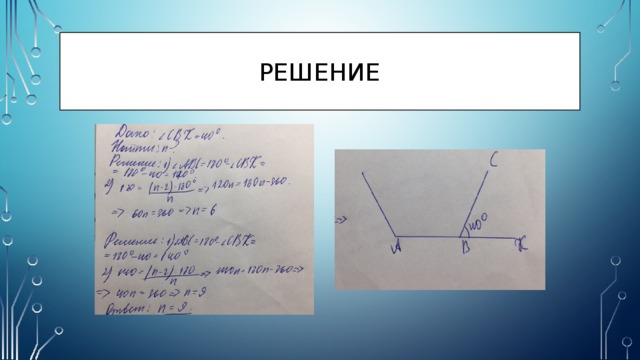 РЕШЕНИЕ
Дано: ∠CBK=40°.
Найти: n-?
Решение: 1) ∠ABC=180°-∠CBK=
= 180°-40=
2) 120= (n-2)·180° / n => 120n=180n-360.
=> 60n=360 => n=6
Решение: 1) ∠ABC=180°-∠CBK=
=180°-40=140°
2) 140= (n-2)·180 / n => 140n=180n-360 =>
=> 40n=360 => n=9
Ответ: n=9.
=>
C
40°
A B K